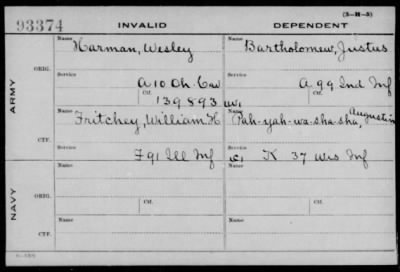 (3-H-3)
93374 INVALID DEPENDENT
Name Name
Harman, Wesley Bartholomew, Justus
ARMY
ORIG. Service Service
A 10 Oh. Cav A 99 Ind Inf
Ctf. Ctf.
139893
Name Name
Fritchey, William H Pah-yah-wa-sha-sha, Augustin
CTF. Service Service
F 91 Ill Inf K 37 Wis Inf
NAVY
Name Ctf. Name Ctf.
ORIG.
Name Name
CTF.